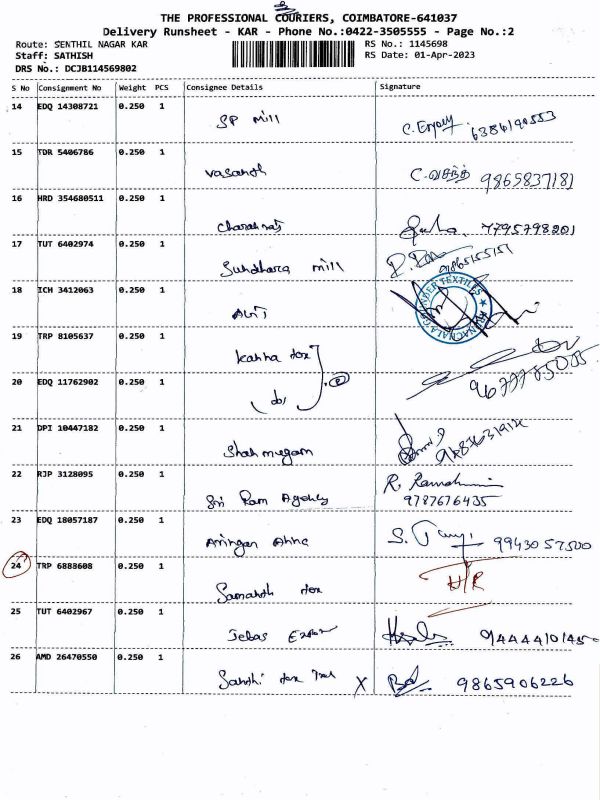 THE PROFESSIONAL COURIERS, COIMBATORE-641037
Delivery Runsheet - KAR - Phone No.:0422-3505555 - Page No.:2
Route: SENTHIL NAGAR KAR RS No.: 1145698
Staff: SATHISH RS Date: 01-Apr-2023
DRS No.: DCJB114569802
S No Consignment No Weight PCS Consignee Details Signature
14 EDQ 14308721 0.250 1 SP mill 6386190553
15 TDR 5406786 0.250 1 Vasanth C. வசந்த் 9865837181
16 HRD 354680511 0.250 1 7795798201
17 TUT 6402974 0.250 1 Sundhara mill 9865155151
18 ICH 3412063 0.250 1 ARUNACHALA GOUNDER TEXTILES
19 TRP 8105637 0.250 1 Kanna tex
20 EDQ 11762902 0.250 1 (2)
21 DPI 10447182 0.250 1 Shanmugam
22 RJP 3128095 0.250 1 Sri Ram Agency R.
9787676435
23 EDQ 18057187 0.250 1 S. 9943057500
24 TRP 6888608 0.250 1 tex H/R
25 TUT 6402967 0.250 1 Jebas 9444410145
26 AMD 26470550 0.250 1 Santhi tex X 9865906226